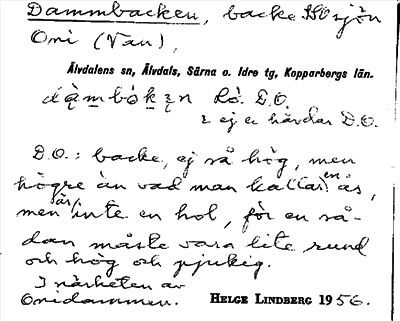 Dammbacken, backe SO sjön
Oni (Van),
Älvdalens sn, Älvdals, Särna o. Idre tg, Kopparbergs län.
Lö. D.O.
ej hävdar D.O.
D.O.: backe, ej så hög, men
högre än vad man kallar en ås,
men är inte en hol, för en så-
dan måste vara lite rund
och hög och pjukig.
I närheten av
Onidammen. HELGE LINDBERG 1956.